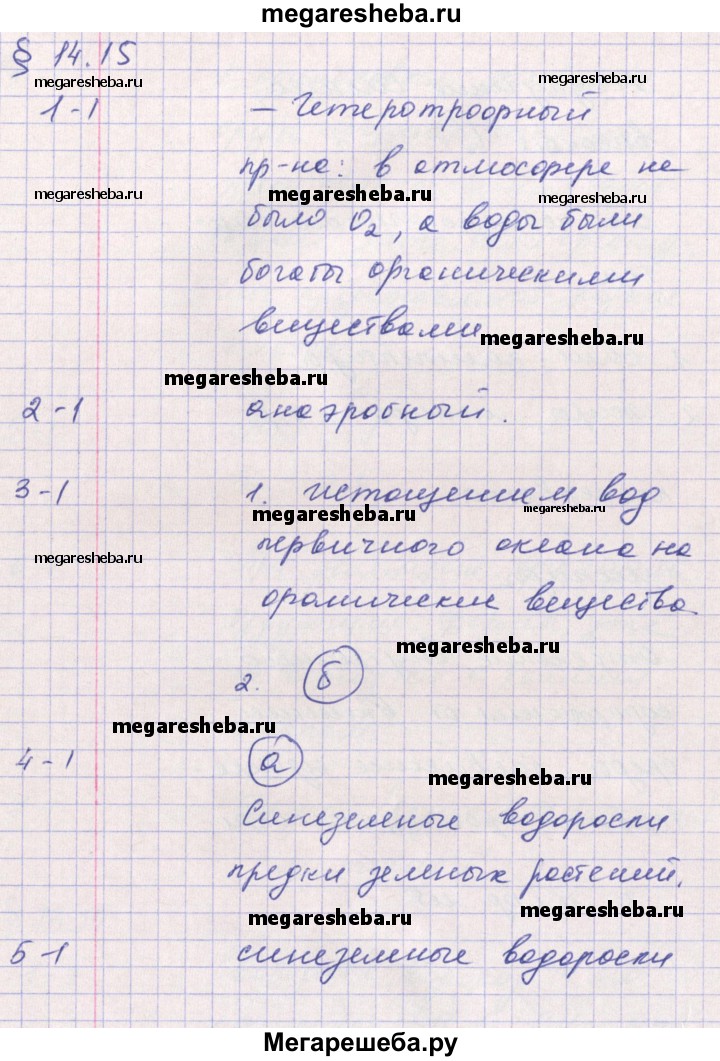 megaresheba.ru
§ 14.15
megaresheba.ru megaresheba.ru
1-1 – Гетеротрофный
пр-на: в атмосфере не
megaresheba.ru megaresheba.ru
было O₂, а воды были
богаты органическими
веществами megaresheba.ru
megaresheba.ru
2-1 анаэробный.
3-1 1. истощением вод
megaresheba.ru megaresheba.ru
первичного океана на
megaresheba.ru
органические вещества
megaresheba.ru
2. б
megaresheba.ru
4-1 а
megaresheba.ru
Синезеленые водоросли
предки зеленых растений.
megaresheba.ru megaresheba.ru
5-1 синезеленые водоросли
Мегарешеба.ру